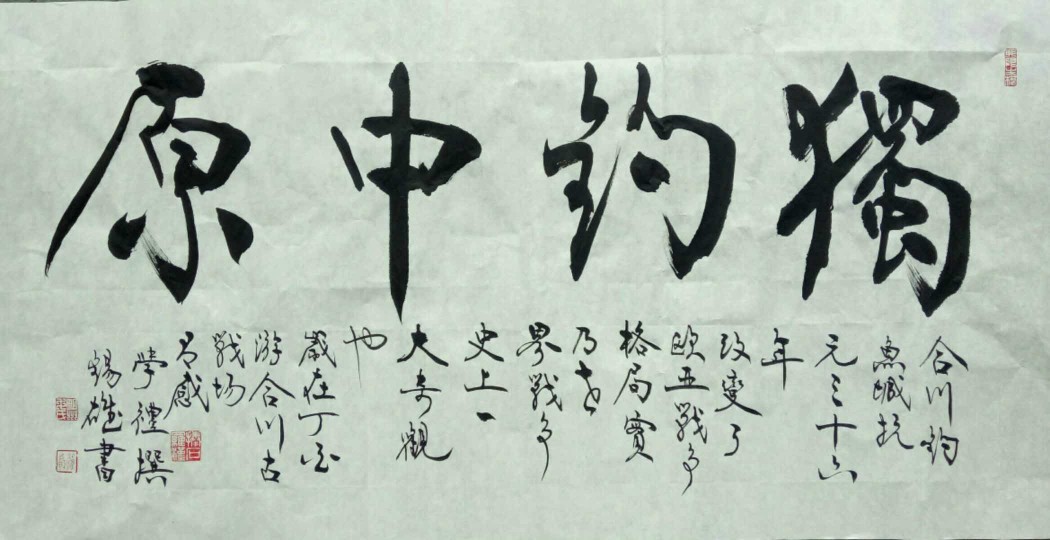 獨釣中原
合川釣
魚城抗
元三十六
年
改變了
欧亚戰争
格局實
乃世
界戰争
史上一
大奇觀
也
歲在丁酉
游合川古
戰場
有感
學禮撰
錫雄書